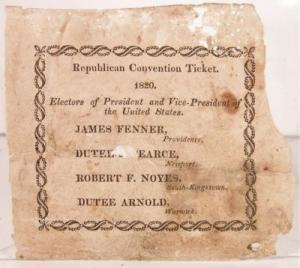 Republican Convention Ticket.
1820.
Electors of President and Vice-President of
the United States.
JAMES FENNER,
Providence,
EARCE,
Newport.
ROBERT F. NOYES,
South-Kingstown,
DUTEE ARNOLD,
Warwick.